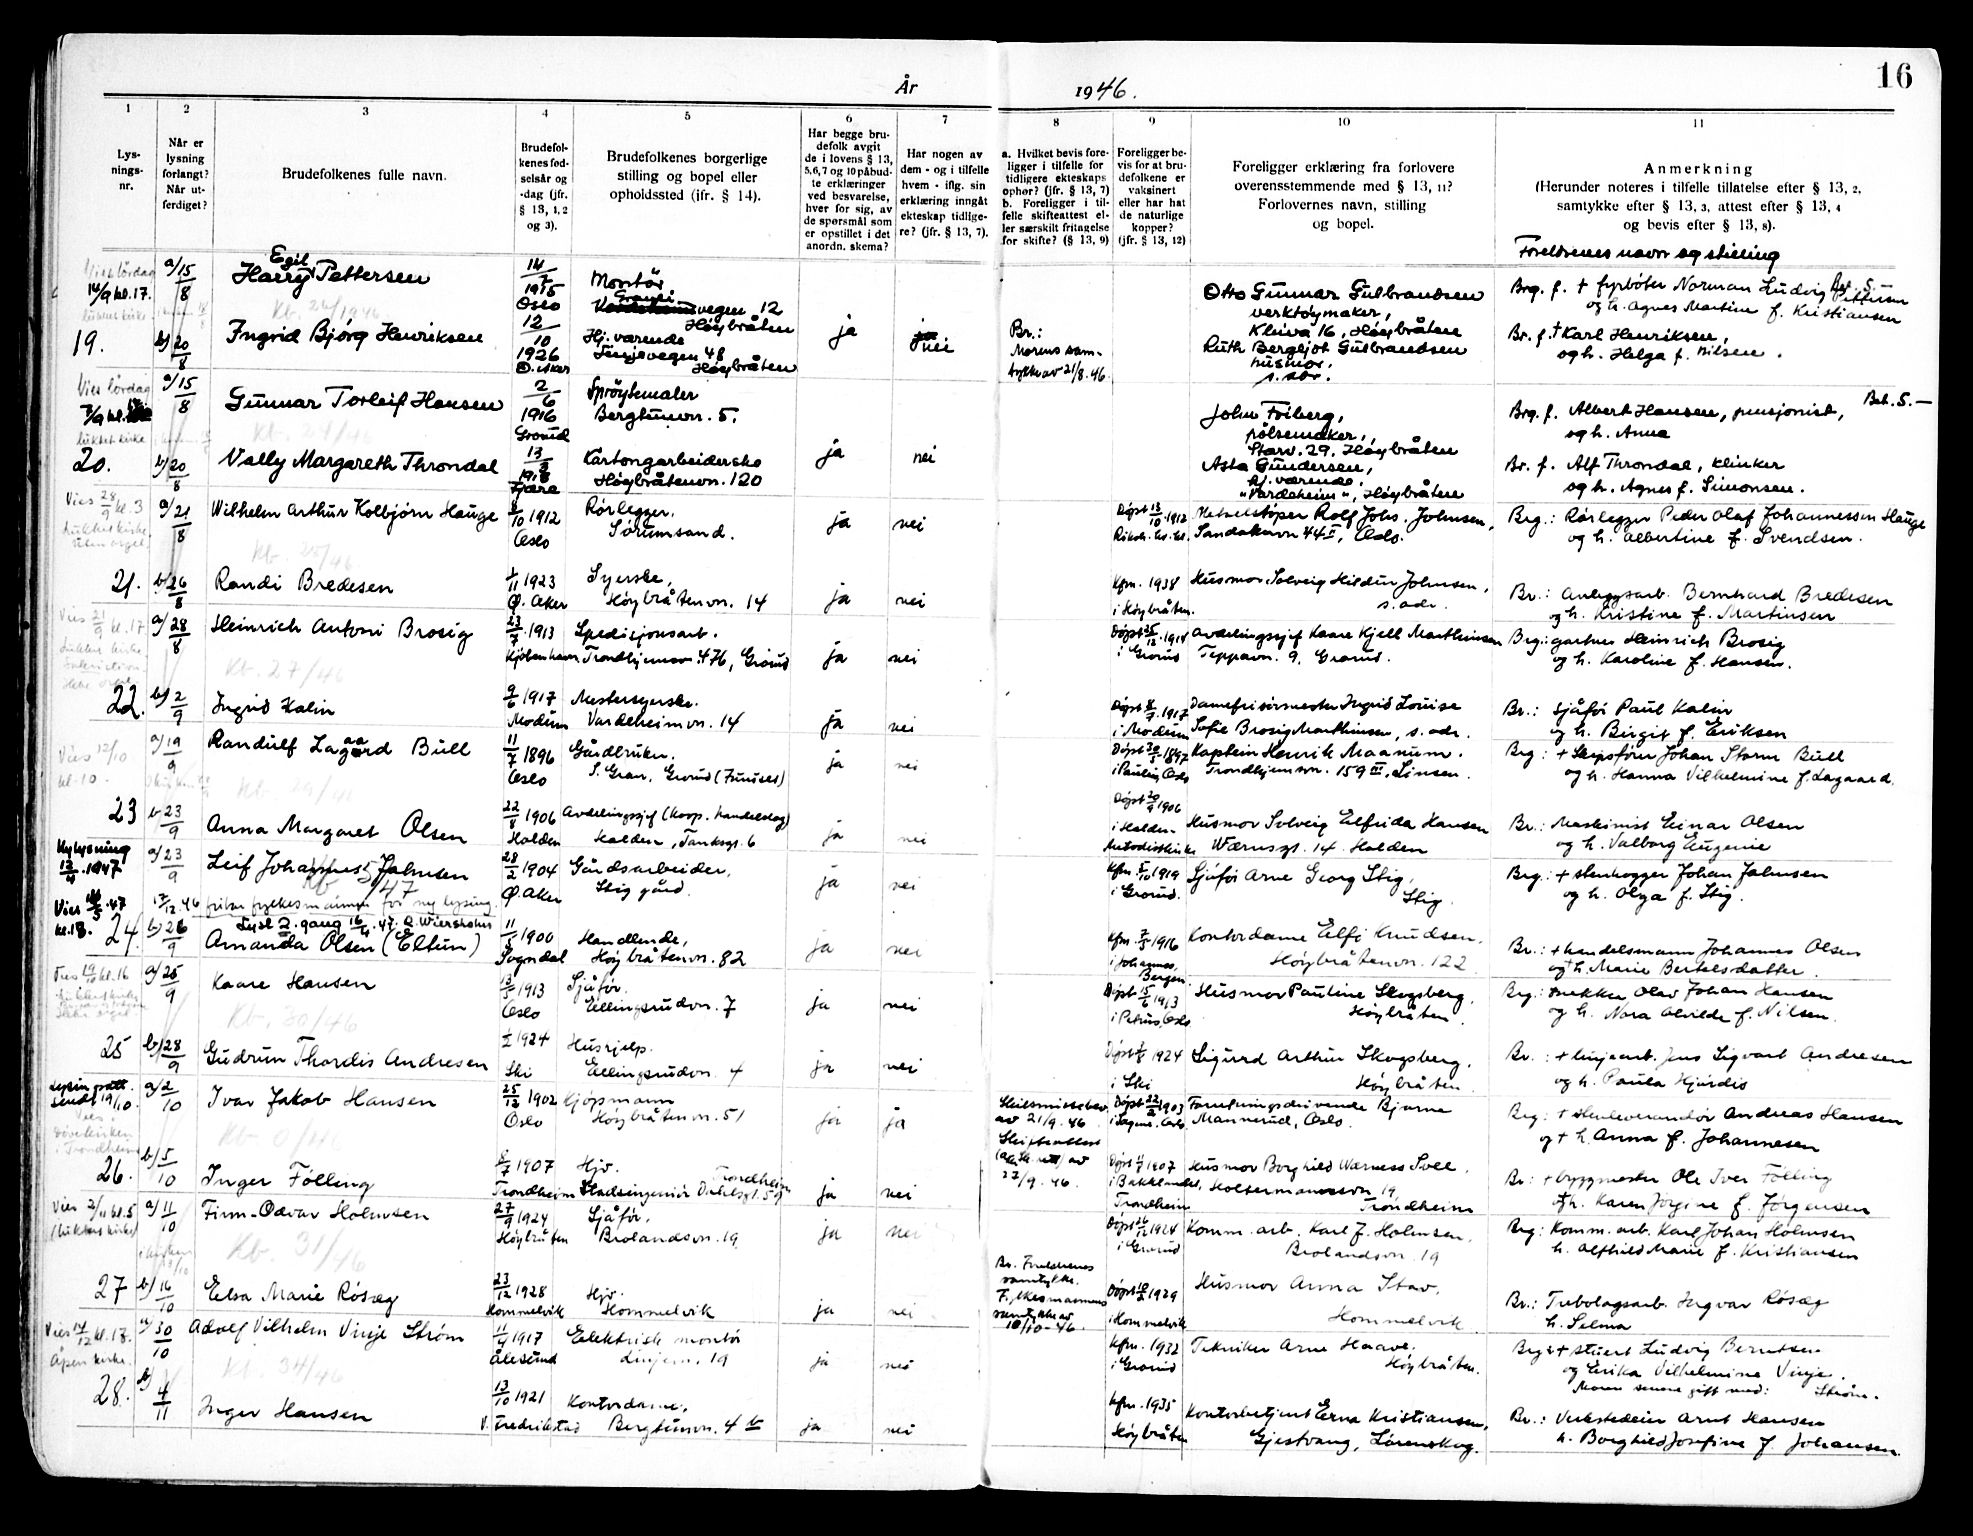 År 1946.
16
1 2 3 4 5 6 7 8 9 10 11
Lys-
nings-
nr.
Når er
lysning
forlangt?
Når ut-
ferdiget?
Brudefolkenes fulle navn.
Brudefol-
kenes fød-
selsår og
-dag (jfr.
§ 13, 1, 2
og 3).
Brudefolkenes borgerlige
stilling og bopel eller
opholdssted (ifr. § 14).
Har begge bru-
defolk avgit
de i lovens § 13,
5, 6, 7 og 10 påbud-
te erklæringer
ved besvarelse,
hver for sig, av
de spørsmål som
er opstillet i det
anordn. skema?
Har nogen av
dem - og i tilfelle
hvem - iflg. sin
erklæring inngåt
ekteskap tidlige-
re? (jfr. § 13, 7).
a. Hvilket bevis fore-
ligger i tilfelle for
tidligere ekteskaps
ophør? (jfr. § 13, 7)
b. Foreligger i til-
felle skifteattest el-
ler særskilt fritagelse
for skifte? (§ 13, 9)
Foreligger be-
vis for at bru-
defolkene er
vaksinert
eller har hat
de naturlige
kopper?
(jfr. § 13, 12)
Foreligger erklæring fra forlovere
overensstemmende med § 13, 11?
Forlovernes navn, stilling
og bopel.
Anmerkning
(Herunder noteres i tilfelle tillatelse efter § 13, 2,
samtykke efter § 13, 3, attest efter § 13, 4
og bevis efter § 13, 8).
Foreldrenes navn og stilling
Vies lördag
14/9 kl. 17.
lukket kirke
19.
a/ 15/8
Egil
Harry Pettersen
Kb. 26/1946
14/7 1915 Oslo
Montör
Granli
vegen 12
Høybråten
Otto Gunnar Gulbrandsen
verktøymaker,
Kløva 16, Høybråten
Brg. f. + fyrbøter Norman Ludvig Pettersen
og h. Agnes Martine f. Kristiansen
Bet. 5.-
b/ 20/8
Ingrid Bjørg Henriksen
12/10 1926 Ø. Aker
Hj. værende
Linjevegen 48
Høybråten
ja
nei
Br.:
Morens sam-
tykke av 21/8. 46.
Ruth Bergljot Gulbrandsen
husmor.
s. adr.
Br. f. + Karl Henriksen,
og h. Helga f. Nilsen.
Vies lördag
7/9 kl.
lukket kirke
20.
a/ 15/8
Gunnar Torleif Hansen
Kb. 24/46
2/6 1916
Grorud
Sprøytemaler
Bergtunvn. 5.
John Friberg,
pølsemaker,
Starv. 29, Høybråten
Brg. f. Albert Hansen, pensjonist,
og h. Anna
Bet. 5.-
b/ 20/8
Vally Margareth Throndal
13/3 1918
Fjære
Kartongarbeiderske
Høybråtenvn. 120
ja
nei
Asta Gundersen,
hj. værende,
"Vardeheim", Høybråten
Br. f. Alf Throndal, klinker
og h. Agnes f. Simonsen.
Vies 28/9 kl. 3
lukket kirke
uten orgel
21.
a/ 21/8
Wilhelm Arthur Kolbjørn Hauge
Kb. 25/46
8/10 1912
Oslo
Rørlegger.
Sørumsand.
ja
nei
Døpt 13/10. 1912
Metallstøper Rolf Johs. Johnsen,
Sandakervn 44 II, Oslo.
Brg.: Rørlegger Peder Olaf Johannessen Hauge
og h. Albertine f. Svendsen.
b/ 26/8
Randi Bredesen
1/11 1923
Ø. Aker
Syerske,
Høybråtenvn. 14
ja
nei
Kfm. 1938
i Høybråten.
Husmor Solveig Hildur Johnsen,
s. adr.
Br.: Anleggsarb. Bernhard Bredesen
og h. Kristine f. Martinsen
Vies 21/9 kl. 17
lukket kirke
22.
a/ 28/8
Heinrich Antoni Brosig
Kb. 27/46
23/7 1913
Kjøbenhavn
Spedisjonsarb.
Trondhjemsvn. 476, Grorud
ja
nei
Døpt 25/12. 1914
i Grorud
Avdelingssjef Kaare Kjell Marthinsen
Teppavn. 9, Grorud.
Brg.: gartner Heinrich Brosig
og h. Karoline f. Hansen.
b/ 2/9
Ingrid Kalin
9/6 1917
Modum
Mestersyerske.
Vardeheimvn. 14
ja
nei
Døpt 8/7. 1917
i Modum
Damefrisørmester Ingrid Louise
Sofie Brosig Marthinsen, s. adr.
Br.: sjåfør Paul Kalin
og h. Birgit f. Eriksen
Vies 12/10
kl. 10
23
a/ 19/9
Randulf Lagaard Bull
Kb. 29/46
11/7 1896
Oslo
Gårdbruker.
S. Gran, Grorud (Furuset)
ja
nei
Døpt 30/5. 1897
i Paulus, Oslo
Kaptein Henrik Maanum.
Trondhjemsvn. 159 III, Linsen.
Brg: + Skipsfører Johan Storm Bull
og h. Hanna Vilhelmine f. Lagaard.
b/ 23/9
Anna Margaret Olsen
22/8 1906
Halden
Avdelingssjef (koop. handelslag)
Halden, Tanksgt. 6
ja
nei
Døpt 20/9 1906
i Halden
Metodistkirke
Husmor Solveig Elfrida Hansen
Wærnsgt. 14. Halden
Br.: Maskinist Einar Olsen
og h. Valborg Eugenie
Ny lysning
13/4. 1947
Vies 10/5. 47
kl. 18.
24.
a/ 23/9
Leif Johannes Johnsen
Kb 5/47
28/2 1904
Ø. Aker
Gårdsarbeider,
Stig gård.
ja
nei
Kfm. 5/10 1919
i Grorud.
Sjåfør Arne Georg Stig,
Stig.
Brg: + stenhogger Johan Johnsen
og h. Olga f. Stig.
17/12. 46 fritar fylkesmannen for ny lysing.
Lyst 2. gang 16/4. 47. R. Wiersholm
b/ 26/9
Amanda Olsen (Eltun)
11/5 1900
Sogndal
Handlende,
Høybråtenvn. 82
ja
nei
Kfm. 7/5 1916
i Johannes,
Bergen
Kontordame Elfi Knudsen.
Høybråtenvn. 122
Br.: + handelsmann Johannes Olsen
og + h. Marie Bertelsdatter.
Vies 19/10 kl. 16
25
a/ 25/9
Kaare Hansen
Kb. 30/46
13/5 1913
Oslo
Sjåfør.
Ellingsrudvn. 7
ja
nei
Døpt 15/6 1913
i Petrus, Oslo
Husmor Pauline Skogsberg,
Høybråten.
Brg: snekker Olav Johan Hansen
og h. Nora Alvilde f. Nilsen.
b/ 28/9
Gudrun Thordis Andresen
1/2 1924
Ski
Hushjelp.
Ellingsrudvn. 4
ja
nei
1924
i Ski
Sigurd Arthur Skogsberg,
Høybråten.
Br.: + linjearb. Jens Sigvart Andresen
og h. Paula Hjørdis
Lysingsatt.
sendt 19/10.
Vies
Dövekirken
i Trondheim
26.
a/ 2/10
Ivar Jakob Hansen
Kb 0/46
25/12 1902
Oslo
Kjøpmann
Høybråtenvn. 51
ja
ja
Skilsmissebev.
av 21/9. 46.
Skifteattest
av
22/9. 46.
Døpt 22/2 1903
i Sagene, Oslo
Forretningsdrivende Bjarne
Mannerud, Oslo.
Brg: + Skoleverandør Andreas Hansen
og + h. Anna f. Johannesen
b/ 5/10
Inger Fölling
8/7 1907
Trondheim
Hjv.
Stadsingeniør Dahlsgt. 59
Trondheim
ja
nei
1907
i Bakklandet,
Trondheim
Husmor Borghild Wærness Svee,
Holtermannsvn. 19,
Trondheim
Br: + byggmester Ole Iver Fölling
h. Karen Jørgine f. Jørgensen
Vies 2/11 kl. 5
(lukket kirke)
27
a/ 11/10
Finn-Odvar Holmsen
Kb. 31/46
27/9 1924
Høybråten
Sjåfør,
Brolandsvn. 19
ja
nei
Døpt 26/12 1924
i Grorud
Komm. arb. Karl J. Holmsen,
Brolandsvn. 19
Brg: Komm. arb. Karl Johan Holmsen
h. Alfhild Marie f. Kristiansen
b/ 16/10
Elsa Marie Røsæg
23/12 1928
Hommelvik
Hjv.
Hommelvik
ja
nei
Br. Foreldrenes
samtykke.
Fylkesmannens
samtykke av
10/10-46.
1929
i Hommelvik
Husmor Anna Stav,
Hommelvik
Br.: Trebolagsarb. Ingvar Røsæg
h. Selma
Vies 14/12 kl. 17.
Åpen kirke.
28.
a/ 30/10
Adolf Vilhelm Vinje Strøm
Kb. 34/46
11/4 1917
Ålesund
Elektrisk montör
Linjevn. 19
ja
nei
Kfm. 1932
i Grorud
Tekniker Arne Haave,
Høybråten.
Brg: + stuert Ludvig Berntsen
og Erika Vilhelmine Vinje.
Moren senere gift med: Strøm.
b/ 4/11
Inger Hansen
13/10 1921
V. Fredrikstad
Kontordame,
Bergtunvn. 4 b
ja
nei
Kfm. 1935
Høybråten
Kontorbetjent Erna Kristiansen,
Gjestvang, Lørenskog.
Br.: Verkstedeier Arnt Hansen
h. Borghild Josefine f. Johansen.